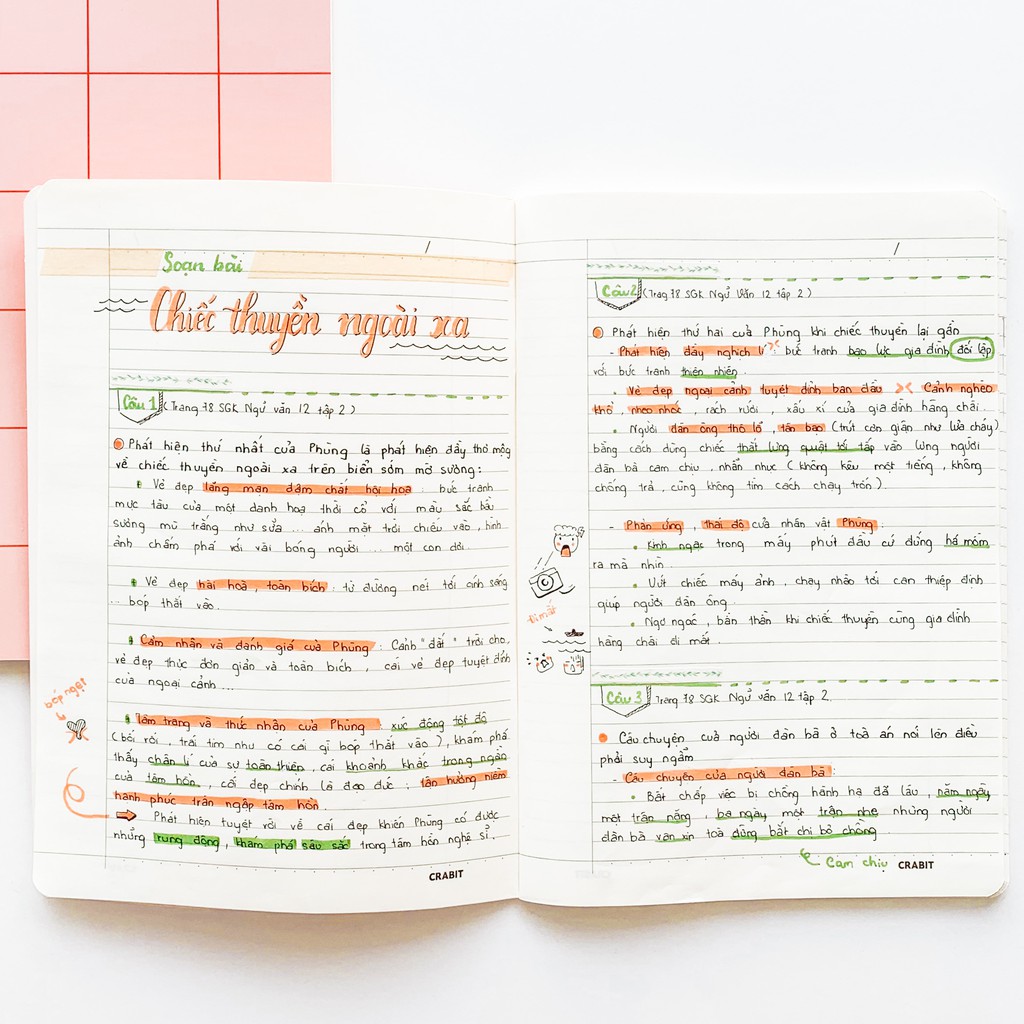 Soạn bài
Chiếc thuyền ngoài xa
Câu 1 (Trang 78 SGK Ngữ văn 12 tập 2)
Phát hiện thứ nhất của Phùng là phát hiện đầy thơ mộng
về chiếc thuyền ngoài xa trên biển sớm mờ sương:
Vẻ đẹp lãng mạn đậm chất hội họa : bức tranh
mực tàu của một danh hoạ thời cổ với màu sắc bầu
sương mù trắng như sữa ... ánh mặt trời chiếu vào, hình
ảnh chấm phá với vài bóng người ... một con dơi.
Vẻ đẹp hài hoà, toàn bích : từ đường nét tới ánh sáng
... bóp thắt vào.
Cảm nhận và đánh giá của Phùng : Cảnh "đắt" trời cho,
vẻ đẹp thực đơn giản và toàn bích, cái vẻ đẹp tuyệt đỉnh
của ngoại cảnh ...
bóp nghẹt
Tâm trạng và thức nhận của Phùng xúc động tột độ
(bối rối, trái tim như có cái gì bóp thắt vào), khám phá
thấy chân lí của sự toàn thiện, cái khoảnh khắc trong ngần
của tâm hồn, cái đẹp chính là đạo đức; tận hưởng niềm
hạnh phúc tràn ngập tâm hồn.
Phát hiện tuyệt vời về cái đẹp khiến Phùng có được
những rung động, khám phá sâu sắc trong tâm hồn nghệ sĩ.
CRABIT
Câu 2 (Trag 78 SGK Ngữ Văn 12 tập 2)
Phát hiện thứ hai của Phùng khi chiếc thuyền lại gần
- Phát hiện đầy nghịch lí : bức tranh bạo lực gia đình đối lập
với bức tranh thiên nhiên.
Vẻ đẹp ngoại cảnh tuyệt đỉnh ban đầu >< Cảnh nghèo
khổ, nheo nhóc, rách rưới, xấu xí của gia đình hàng chài.
Người đàn ông thô lỗ, tàn bạo (trút cơn giận như lửa cháy)
bằng cách dùng chiếc thắt lưng quật tới tấp vào lưng người
đàn bà cam chịu, nhẫn nhục (không kêu một tiếng, không
chống trả, cũng không tìm cách chạy trốn).
- Phản ứng, thái độ của nhân vật Phùng:
Kinh ngạc trong mấy phút đầu cứ đứng há mồm
ra mà nhìn.
Vứt chiếc máy ảnh, chạy nhào tới can thiệp định
giúp người đàn ông.
Ngơ ngác, bần thần khi chiếc thuyền cùng gia đình
hàng chài đi mất.
đi mất
Câu 3 Trang 78 SGK Ngữ văn 12 tập 2.
Câu chuyện của người đàn bà ở toà án nói lên điều
phải suy ngẫm
- Câu chuyện của người đàn bà:
Bất chấp việc bị chồng hành hạ đã lâu, năm ngày
một trận nặng, ba ngày một trận nhẹ nhưng người
đàn bà van xin toà đừng bắt chị bỏ chồng.
Cam chịu
CRABIT